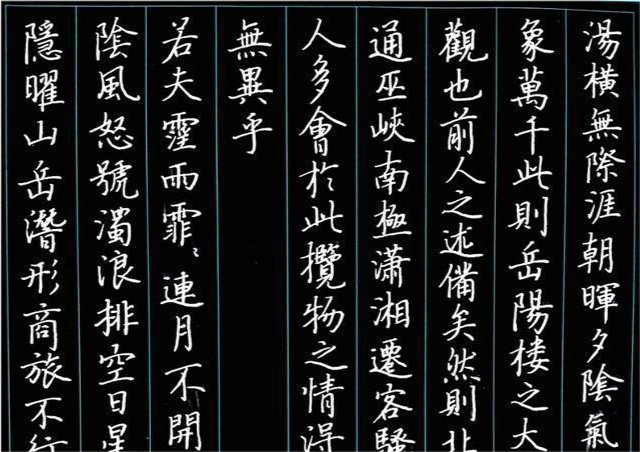 湯橫無際涯朝暉夕陰氣
象萬千此則岳陽樓之大
觀也前人之述備矣然則北
通巫峽南極瀟湘遷客騷
人多會於此攬物之情得
無異乎
若夫霪雨霏〻連月不開
陰風怒號濁浪排空日星
隱曜山岳潛形商旅不行